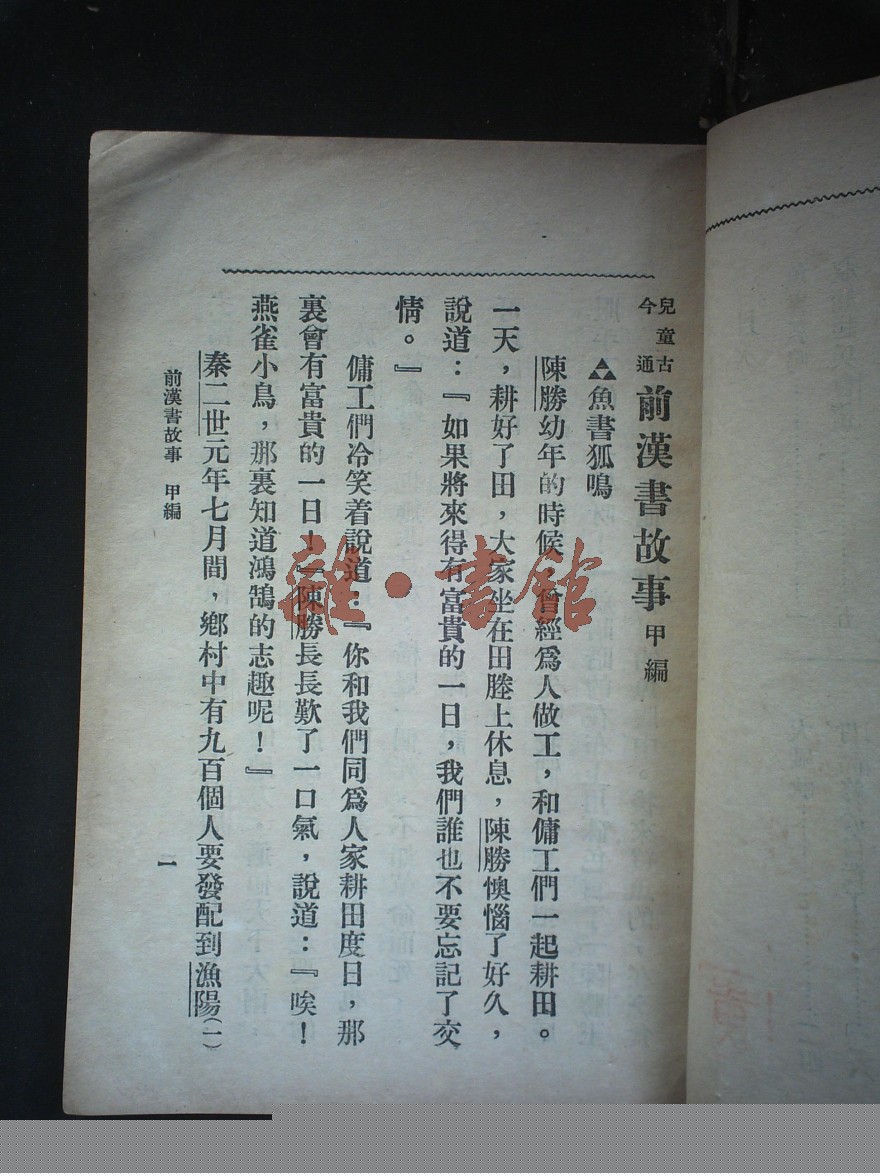 兒童古今通
前漢書故事 甲編
▲魚書狐鳴
陳勝幼年的時候，曾經爲人做工，和傭工們一起耕田。
一天，耕好了田，大家坐在田塍上休息，陳勝懊惱了好久，
說道：『如果將來得有富貴的一日，我們誰也不要忘記了交
情。』
傭工們冷笑着說道：『你和我們同爲人家耕田度日，那
裏會有富貴的一日！』陳勝長長歎了一口氣，說道：『唉！
燕雀小鳥，那裏知道鴻鵠的志趣呢！』
秦二世元年七月間，鄉村中有九百個人要發配到漁陽(一)
前漢書故事 甲編
一
雜·書館